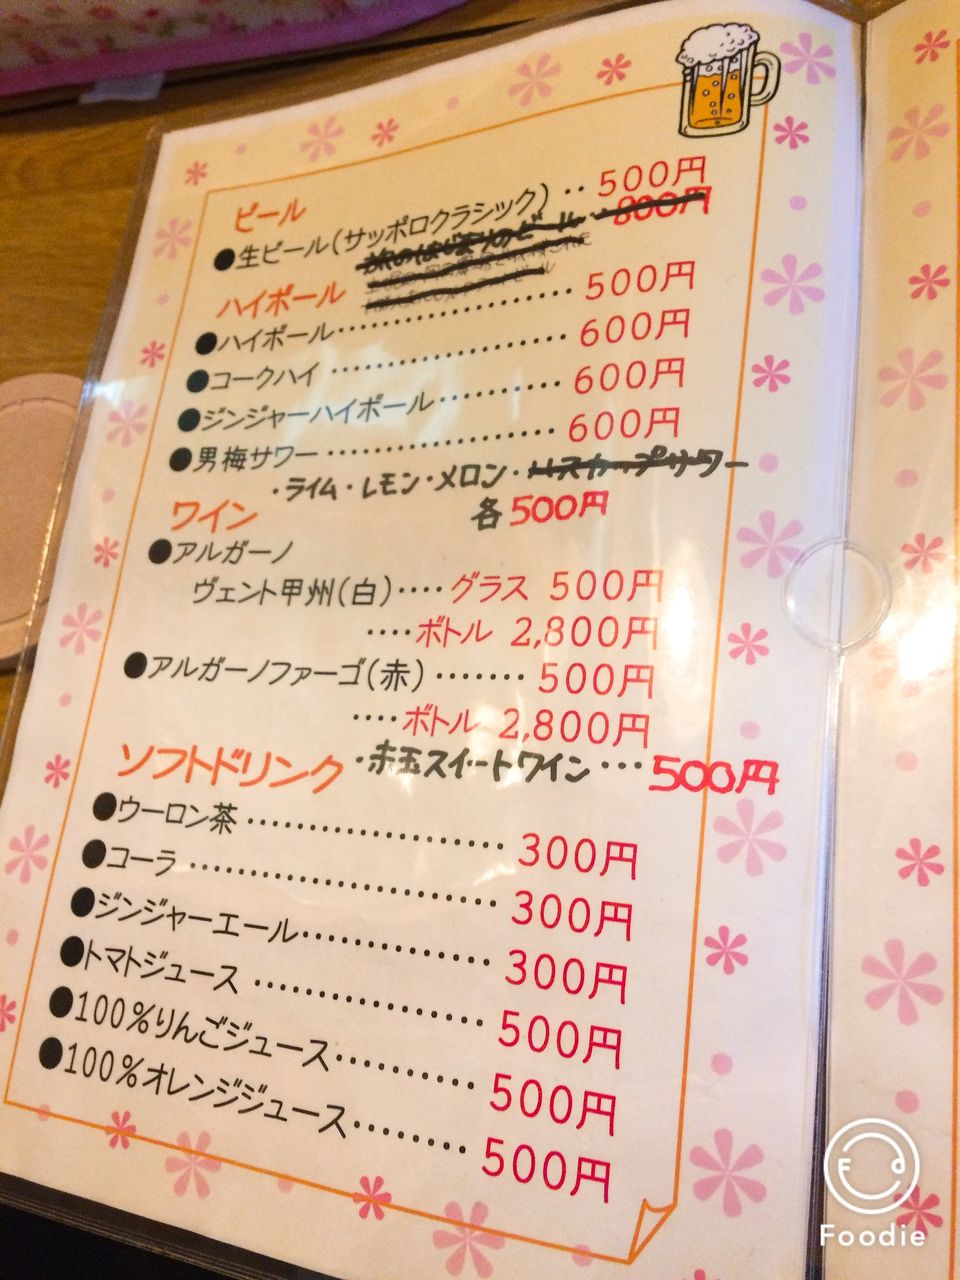 ビール
●生ビール(サッポロクラシック)‥500円
旅のはじまりのビール 800円
ハイボール
●ハイボール‥‥‥‥‥‥500円
●コークハイ‥‥‥‥‥‥600円
●ジンジャーハイボール‥‥‥600円
●男梅サワー‥‥‥‥‥‥600円
・ライム・レモン・メロン・ハスカップサワー
各500円
ワイン
●アルガーノ
ヴェント甲州(白)‥‥グラス 500円
‥‥ボトル 2,800円
●アルガーノファーゴ(赤)‥‥‥500円
‥‥ボトル 2,800円
・赤玉スイートワイン…500円
ソフトドリンク
●ウーロン茶‥‥‥‥‥‥300円
●コーラ‥‥‥‥‥‥300円
●ジンジャーエール‥‥‥‥‥300円
●トマトジュース‥‥‥‥‥500円
●100%りんごジュース‥‥‥‥500円
●100%オレンジジュース‥‥‥500円
Foodie